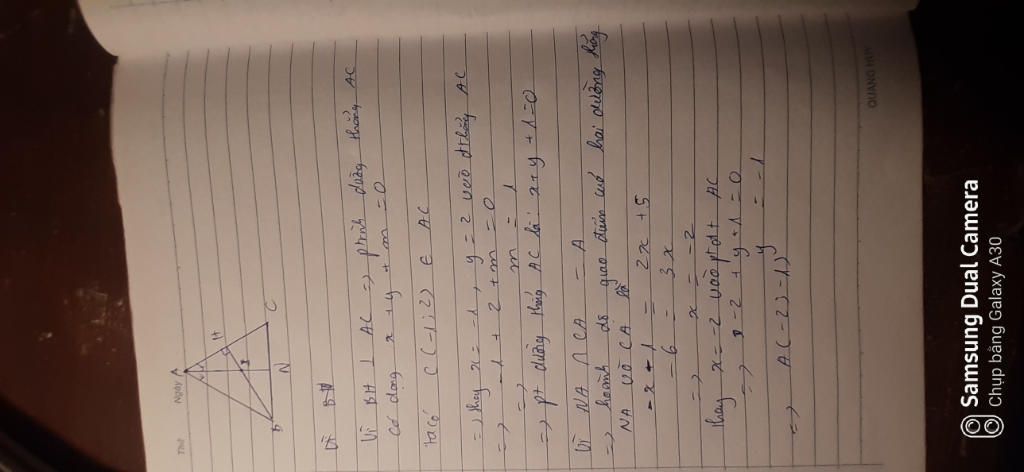 Thứ
Ngày
A
H
I
B
N
C
Vì BH
Vì BH ⊥ AC => ptrình đường thẳng AC
có dạng x + y + m = 0
ta có C (-1; 2) ∈ AC
=> thay x = -1, y = 2 vào đthẳng AC
=> -1 + 2 + m = 0
=> m = 1
=> pt đường thẳng AC là x + y + 1 = 0
Vì NA ∩ CA = A
=> hoành độ giao điểm của hai đường thẳng
NA và CA là
-x - 1 = 2x + 5
-6 = 3x
=> x = -2
thay x = -2 vào ptđt AC
=> -2 + y + 1 = 0
y = -1
=> A (-2; -1)
QUANG HUY
Samsung Dual Camera
Chụp bằng Galaxy A30